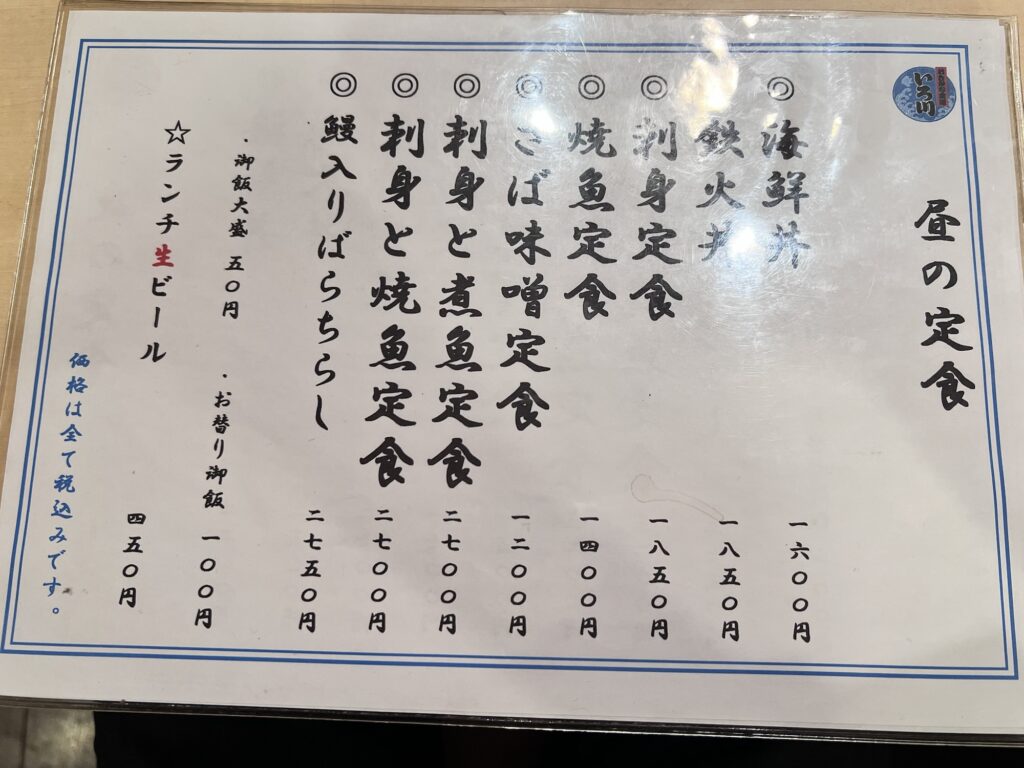 いろ川
昼の定食
◎海鮮丼 一六〇〇円
鉄火丼 一八五〇円
◎刺身定食 一八五〇円
◎焼魚定食 一四〇〇円
◎さば味噌定食 一二〇〇円
◎刺身と煮魚定食 二七〇〇円
◎刺身と焼魚定食 二七〇〇円
◎鰻入りばらちらし 二七五〇円
・御飯大盛 五〇円 ・お替り御飯 一〇〇円
☆ランチ生ビール 四五〇円
価格は全て税込みです。